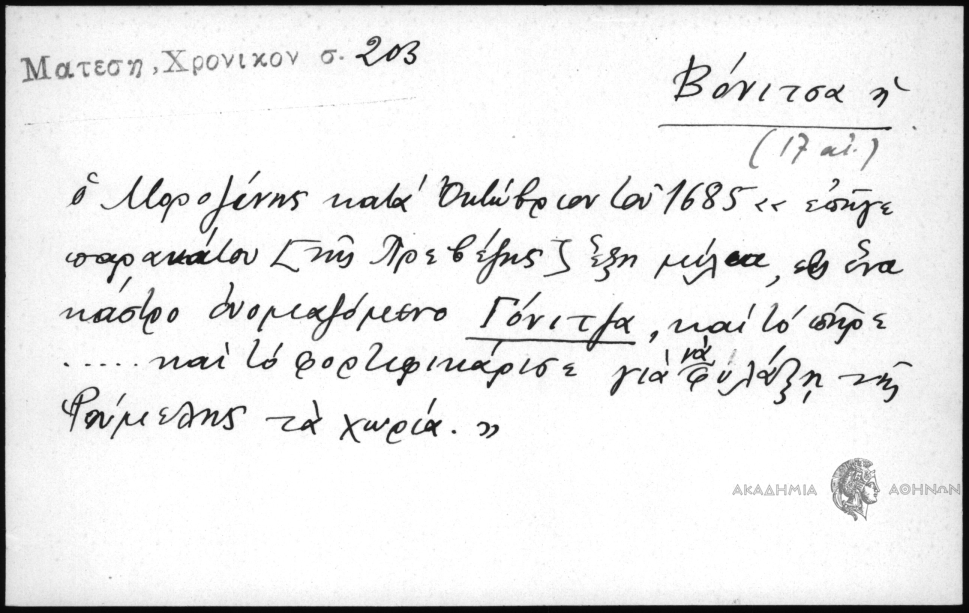 Ματεση, Χρονικον σ. 203
Βόνιτσα ἡ
(17 αἰ.)
ὁ Μοροζίνης κατά Ὀκτώβριον τοῦ 1685 « ἐπῆγε
παρακάτου [τῆς Πρεβέζης] ἕξη μίλια, εἰς ἕνα
κάστρο ὀνομαζόμενο Γόνιτζα, καί τό πῆρε
..... καί τό φορτεφικάρισε γιά νά φυλάξῃ τῆς
Ρούμελης τὰ χωρία. »
ΑΚΑΔΗΜΙΑ ΑΘΗΝΩΝ